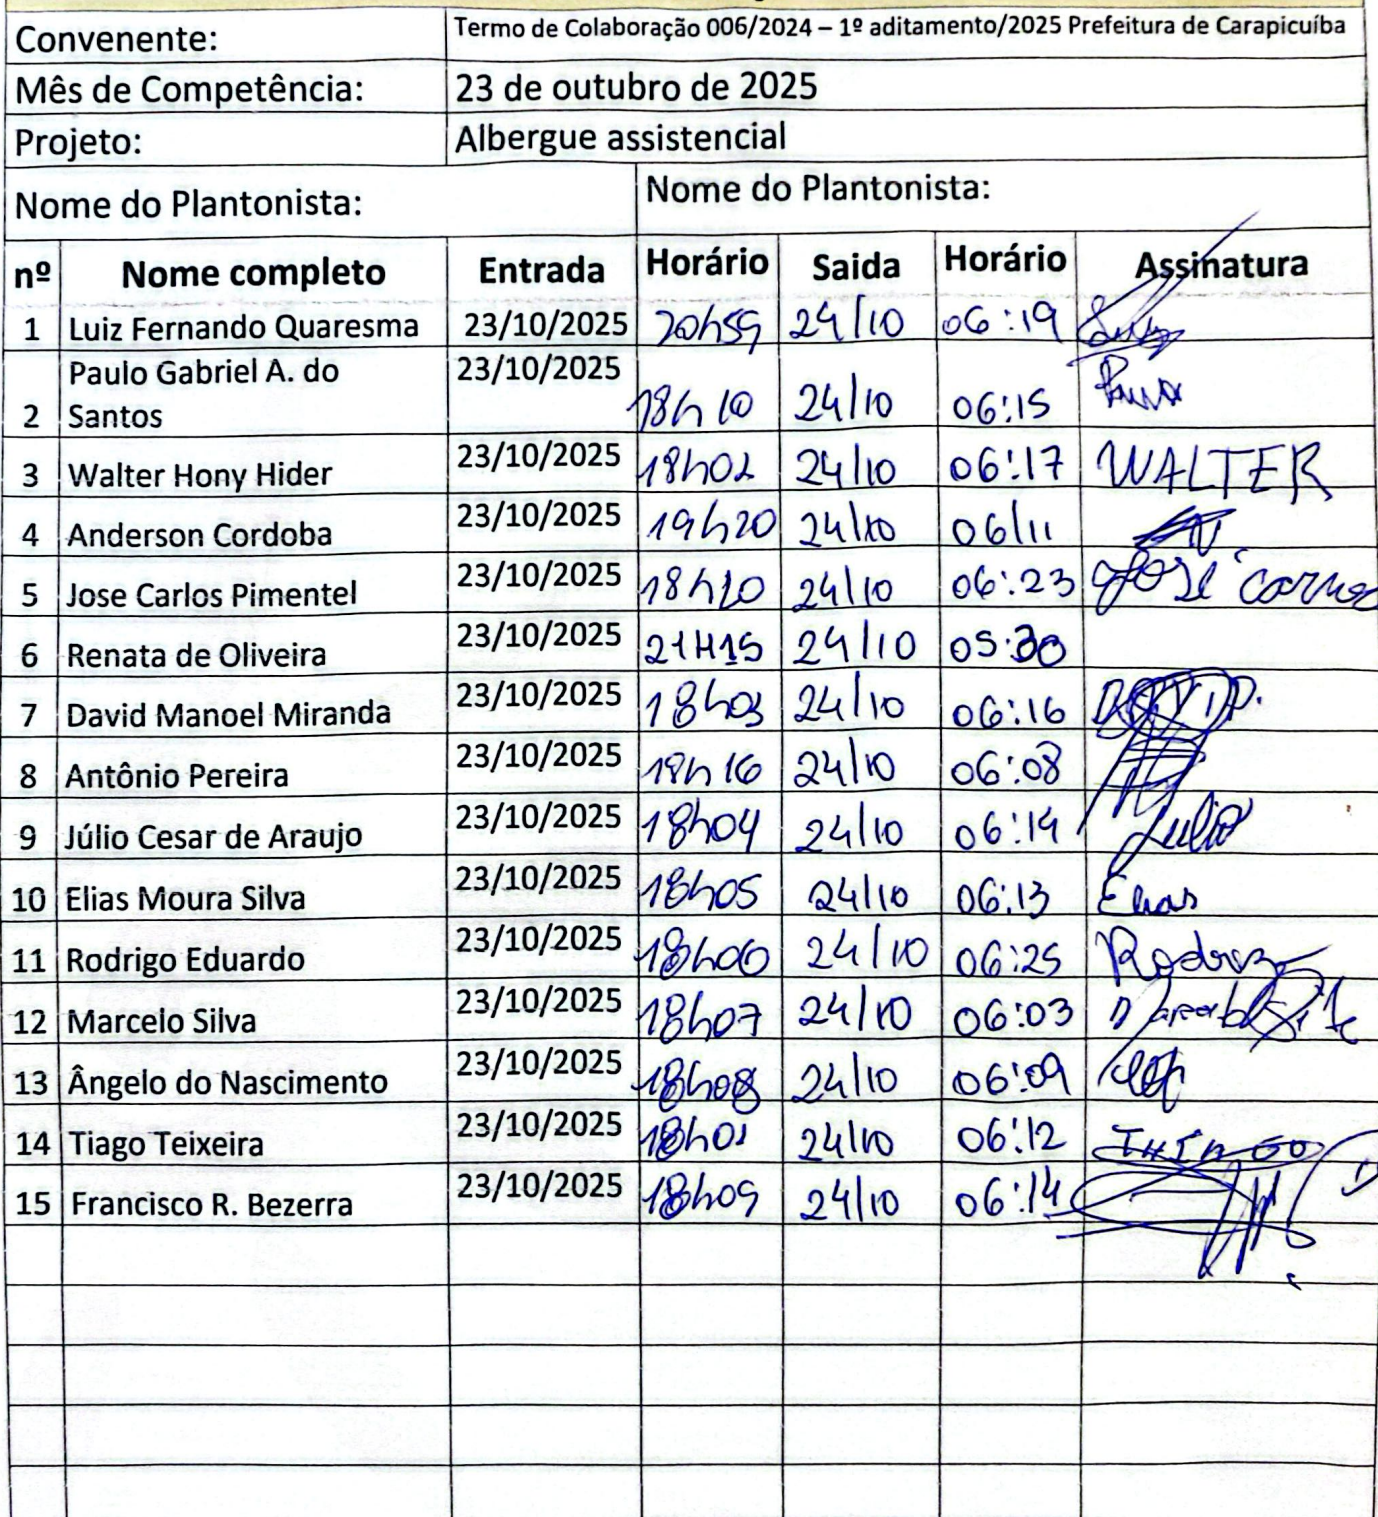 Convenente: Termo de Colaboração 006/2024 – 1º aditamento/2025 Prefeitura de Carapicuíba
Mês de Competência: 23 de outubro de 2025
Projeto: Albergue assistencial
Nome do Plantonista: Nome do Plantonista:
nº Nome completo Entrada Horário Saida Horário Assinatura
1 Luiz Fernando Quaresma 23/10/2025 20h59 24/10 06:19 Luiz
Paulo Gabriel A. do
2 Santos 23/10/2025 18h10 24/10 06:15
3 Walter Hony Hider 23/10/2025 18h02 24/10 06:17 WALTER
4 Anderson Cordoba 23/10/2025 19h20 24/10 06/11
5 Jose Carlos Pimentel 23/10/2025 18h20 24/10 06:23 José
6 Renata de Oliveira 23/10/2025 21H15 24/10 05:30
7 David Manoel Miranda 23/10/2025 18h03 24/10 06:16
8 Antônio Pereira 23/10/2025 24/10 06:08
9 Júlio Cesar de Araujo 23/10/2025 18h04 24/10 06:14 Julio
10 Elias Moura Silva 23/10/2025 18h05 24/10 06:13 Elias
11 Rodrigo Eduardo 23/10/2025 18h06 24/10 06:25
12 Marcelo Silva 23/10/2025 18h07 24/10 06:03
13 Ângelo do Nascimento 23/10/2025 18h08 24/10 06:09
14 Tiago Teixeira 23/10/2025 18h01 24/10 06:12
15 Francisco R. Bezerra 23/10/2025 18h09 24/10 06:14